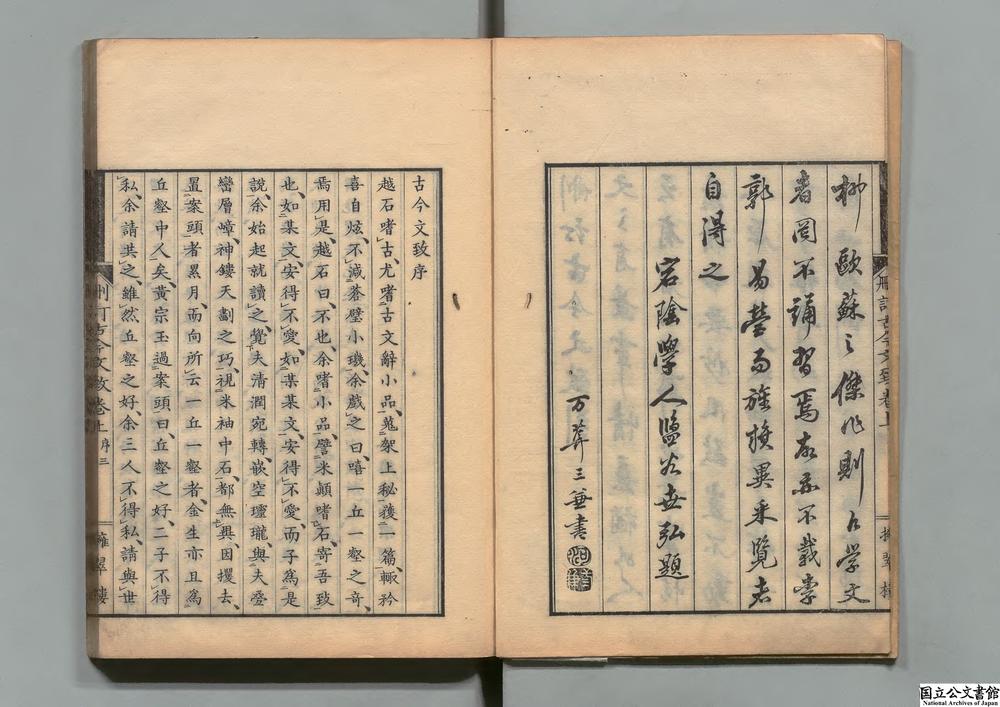 柳歐蘇之傑作則凡學文
者罔不誦習焉故亦不載李
郭易營而旌旗異采覽者
自得之
宕陰學人鹽谷世弘題
万葊三兼書
刪訂古今文致卷上
擁翠樓
古今文致序
越石嗜古尤嗜古文辭小品蒐架上秘獲一篇輒矜
喜自炫不減蒼璧小璣余戲之曰嘻一丘一壑之奇
焉用是越石曰不也余嗜小品譬米顛嗜石寄吾致
也如某文安得不愛如某某文安得不愛而子爲是
說余始起就讀之覺夫清潤宛轉嵌空瓏瓏與夫疊
巒層嶂神鏤天劃之巧視米袖中石都無異因攫去
置案頭者累月而向所云一丘一壑者金生亦且爲
丘壑中人矣黃宗玉過案頭曰丘壑之好二子不得
私余請共之雖然丘壑之好余三人不得私請與世
刪訂古今文致卷上 序三
擁翠樓
国立公文書館
National Archives of Japan